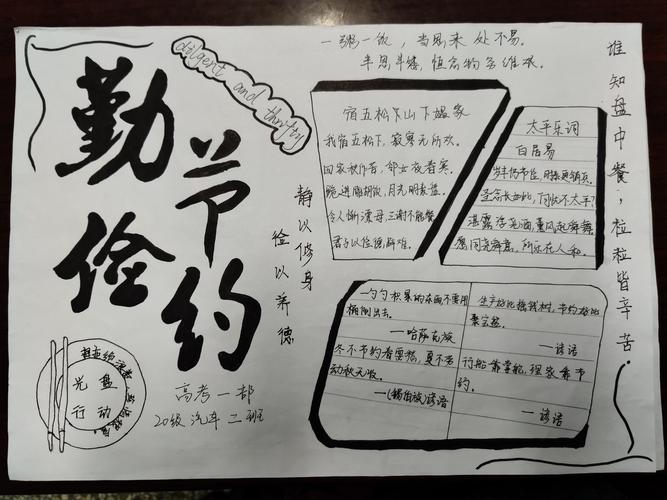 勤俭
节约
diligent and thrifty
一粥一饭，当思来处不易。
半思半缕，恒念物力维艰。
谁知盘中餐；粒粒皆辛苦。
静以修身
俭以养德
宿五松下山下媪家
我宿五松下，寂寥无所欢。
田家秋作苦，邻女夜舂寒。
跪进雕胡饭，月光明素盘。
令人惭漂母，三谢不能餐
太平乐词
白居易
岁丰仍节俭，时泰更销兵。
圣念长如此，何忧不太平？
湛露浮尧酒，薰风起舜歌
愿同尧舜意，所乐在人和。
一勺勺积累的东西不要用
桶倒出去。
——哈萨克族
冬不节约春要愁，夏不劳
动秋无收。
谚语
生产好比摇钱树，节约好比
聚宝盆。
——谚语
行船靠掌舵，理家靠节
约。
——谚语
光盘
行动
高考一部
20级汽车二班